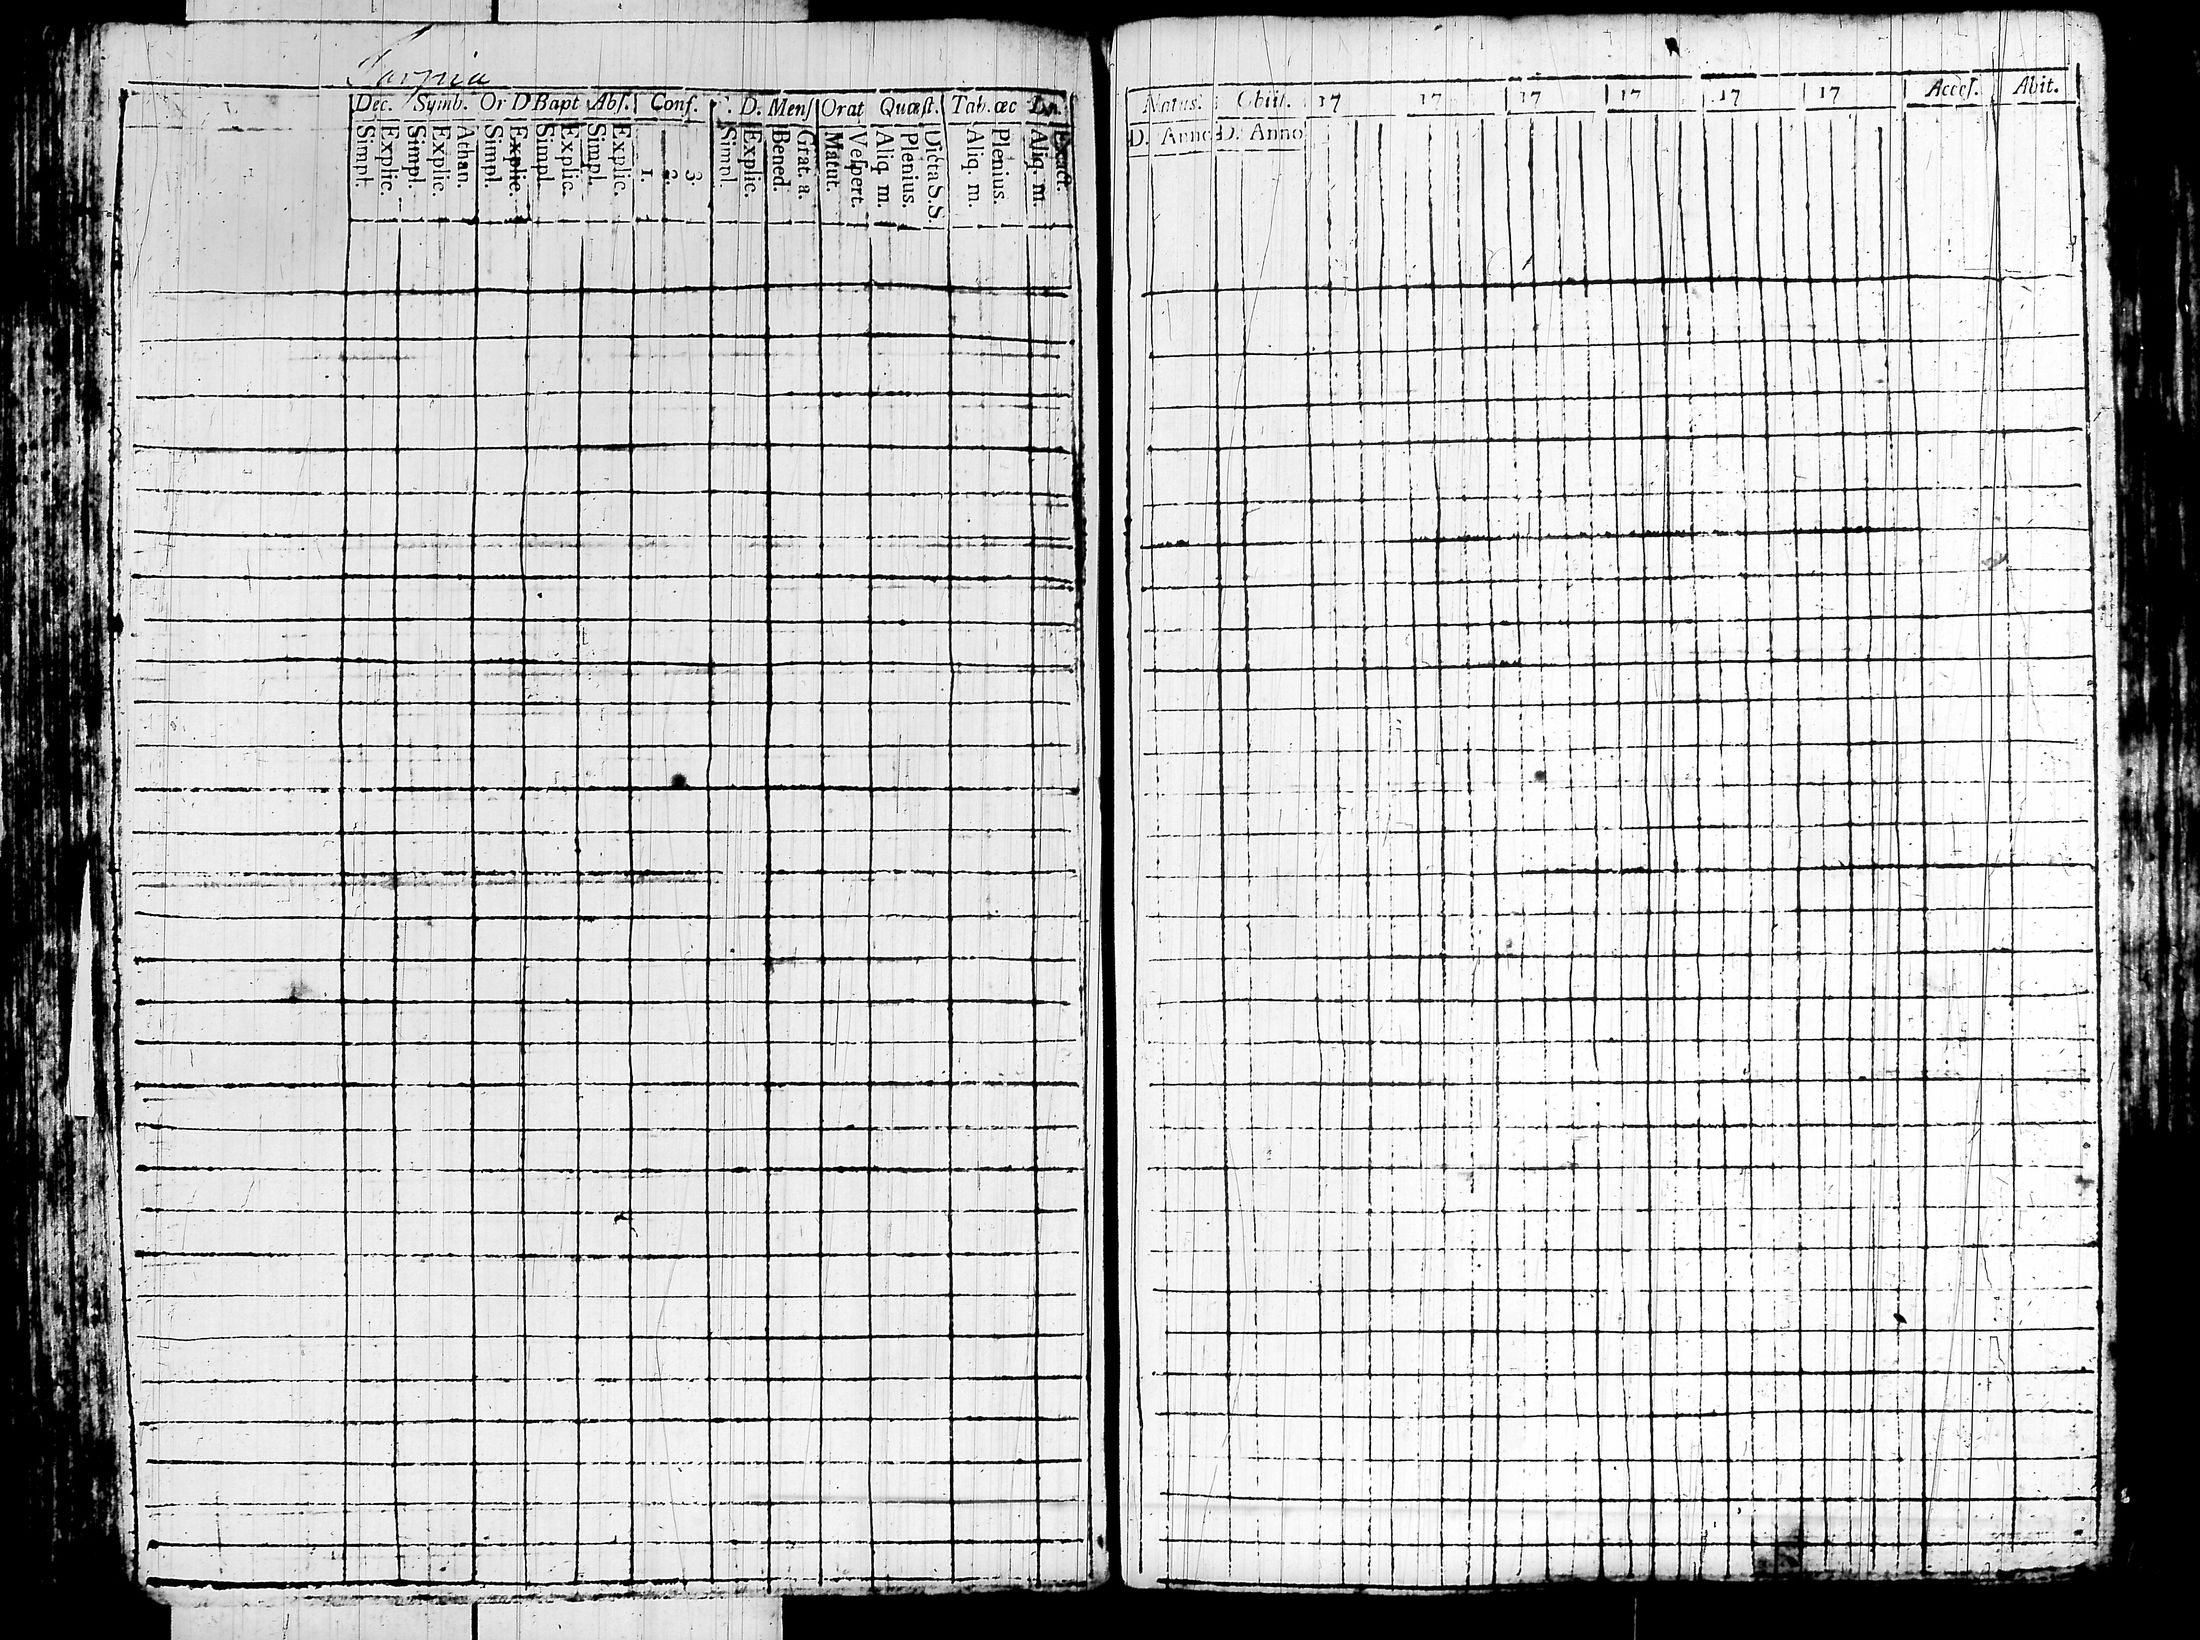 Torpia
Dec. Symb. Or D Bapt Abſ. Conf. D. Menſ Orat Quæſt. Tab. œc
Simpl. Explic. Simpl. Explic. Athan. Simpl. Explic. Simpl. Explic. Simpl. Explic. 1. 2. 3. Simpl. Explic. Bened. Grat. a. Matut. Veſpert. Aliq. m. Plenius. Dicta S.S. Aliq. m. Plenius. Aliq. m. Exact.
Natus. Obiit. 17 17 17 17 17 17 Acceſ. Abit.
D. Anno D. Anno